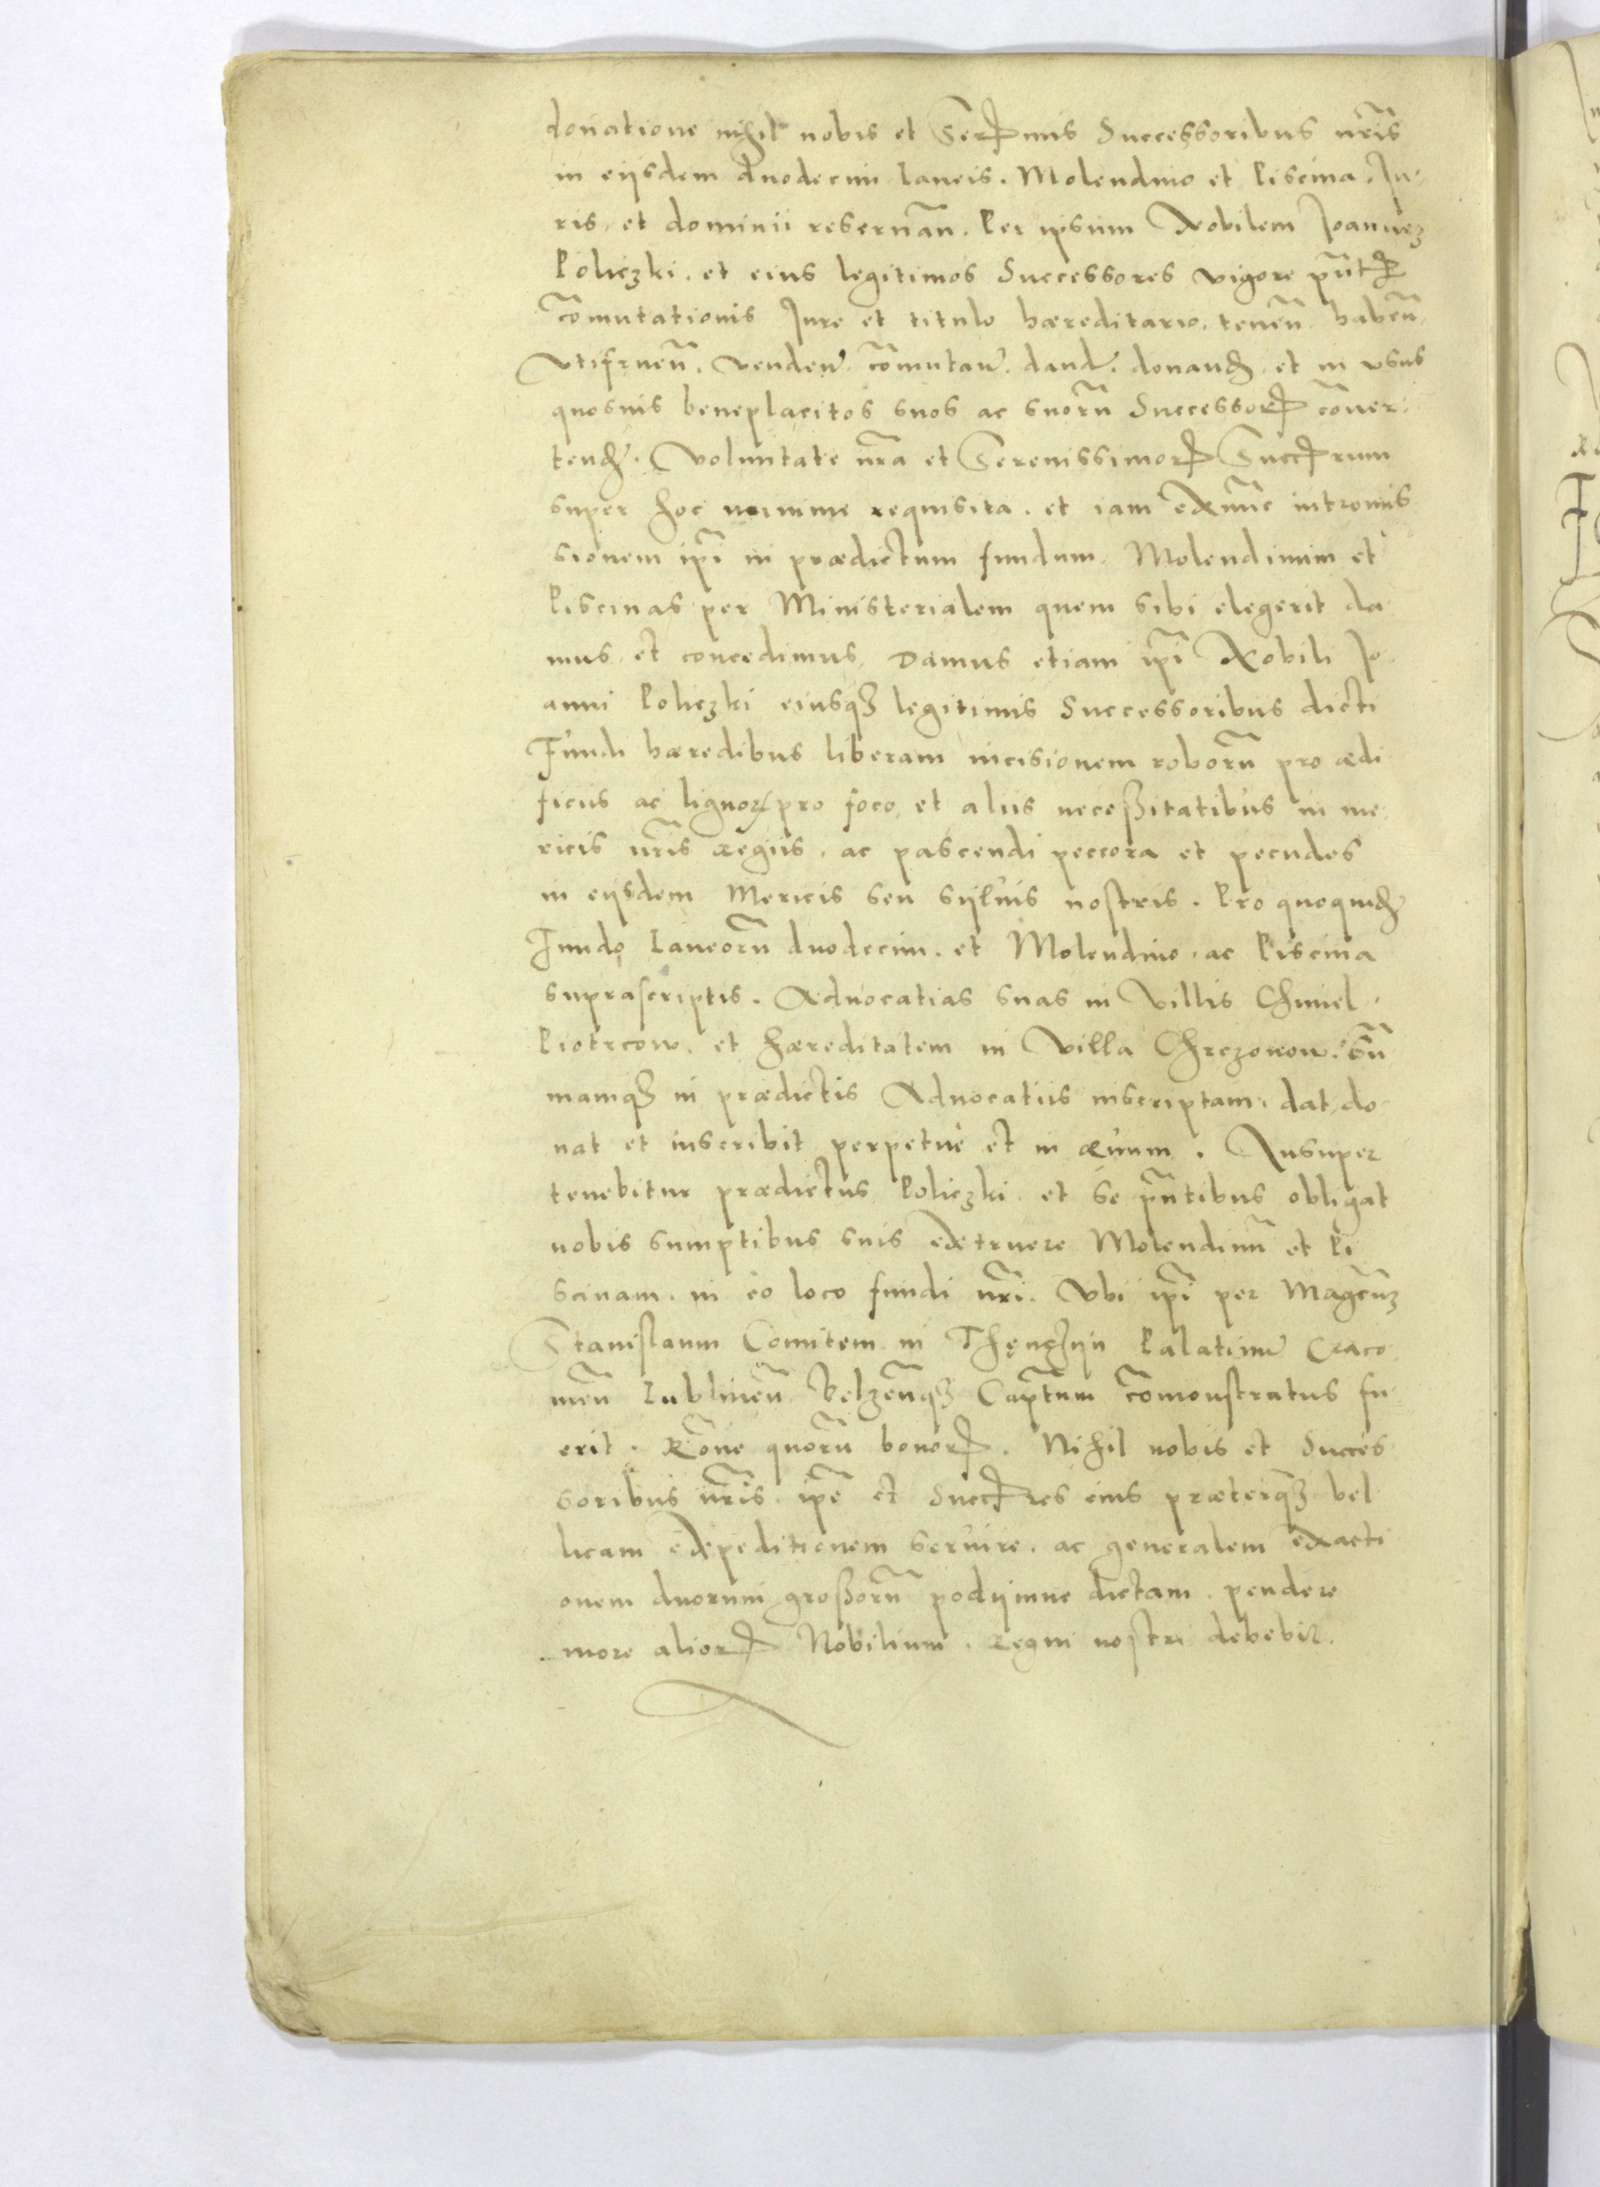 donatione nihil nobis et Serꝝmis Successoribus nr̃is
in eijsdem duodecim Laneis. Molendino et Piscina. Ju-
ris, et dominii reseruañ. Per ipsum Nobilem Joannez
Policzki, et eius legitimos Successores vigore pñtꝝ
com̃utationis Jure et titulo hæreditario, teneñ, habeñ,
vtifrueñ, vendeñ, com̃utañ, danđ, donanđ, et in vsus
quosuis beneplacitos suos ac suorũ Successorꝝ cõuer-
tenđ. Voluntate nr̃a et Serenissimorꝝ Succꝝrum
super hoc minime requisita. et iam exnũc intromis
sionem ip̃i in prædictum fundum, Molendinum et
Piscinas per Ministerialem quem sibi elegerit da
mus et concedimus, Damus etiam ip̃i Nobili Jo
anni Policzki eiusqȝ legitimis Successoribus dicti
Fundi hæredibus liberam incisionem roborũ pro ædi
ficiis ac lignorꝝ pro foco, et aliis neceßitatibus in me
ricis nr̃is Regiis, ac pascendi peccora et pecudes
in eijsdem Mericis seu syluis nostris. Pro quoquiđ
Fundo Laneorũ duodecim, et Molendino, ac Piscina
suprascriptis. Aduocatias suas in Villis Chmiel,
Piotrcow, et hæreditatem in Villa Chrezonow. Sũ
mamqȝ in prædictis Aduocatiis inscriptam, dat, do
nat et inscribit perpetuè et in æuum. Insuper
tenebitur prædictus Policzki, et se pñtibus obligat
nobis sumptibus suis extruere Molendinũ et Pi
scinam, in eo loco fundi nr̃i. Vbi ip̃i per Magcũz
Stanislaum Comitem in Thęnczijn Palatinũ Craco
uieñ Lublineñ Belzeñqȝ Capt̃um com̃onstratus fu
erit. Rõne quorũ bonorꝝ. Nihil nobis et Succes
soribus nr̃is, ip̃e et Succꝝres eius præterqȝ bel
licam expeditionem seruire, ac generalem exacti
onem duorum großorũ podijmne dictam, pendere
more aliorꝝ Nobilium, Regni nostri debebit.